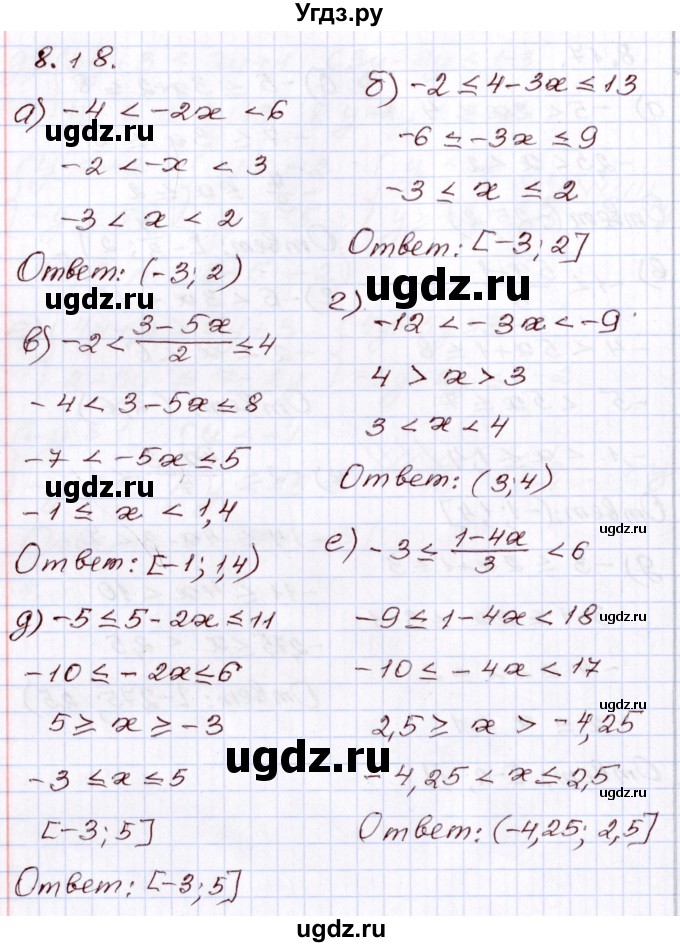 Угдз.ру
8.18.
а) -4 < -2x < 6
-2 < -x < 3
-3 < x < 2
Ответ: (-3; 2)
б) -2 ≤ 4-3x ≤ 13
-6 ≤ -3x ≤ 9
-3 ≤ x ≤ 2
Ответ: [-3; 2]
в) -2 < (3-5x)/2 ≤ 4
-4 < 3-5x ≤ 8
-7 < -5x ≤ 5
-1 ≤ x < 1,4
Ответ: [-1; 1,4)
г) -12 < -3x < -9
4 > x > 3
3 < x < 4
Ответ: (3; 4)
д) -5 ≤ 5-2x ≤ 11
-10 ≤ -2x ≤ 6
5 ≥ x ≥ -3
-3 ≤ x ≤ 5
[-3; 5]
Ответ: [-3; 5]
е) -3 ≤ (1-4x)/3 < 6
-9 ≤ 1-4x < 18
-10 ≤ -4x < 17
2,5 ≥ x > -4,25
-4,25 < x ≤ 2,5
Ответ: (-4,25; 2,5]
ugdz.ru
ugdz.ru
ugdz.ru
ugdz.ru
ugdz.ru
ugdz.ru
ugdz.ru
ugdz.ru
ugdz.ru
ugdz.ru